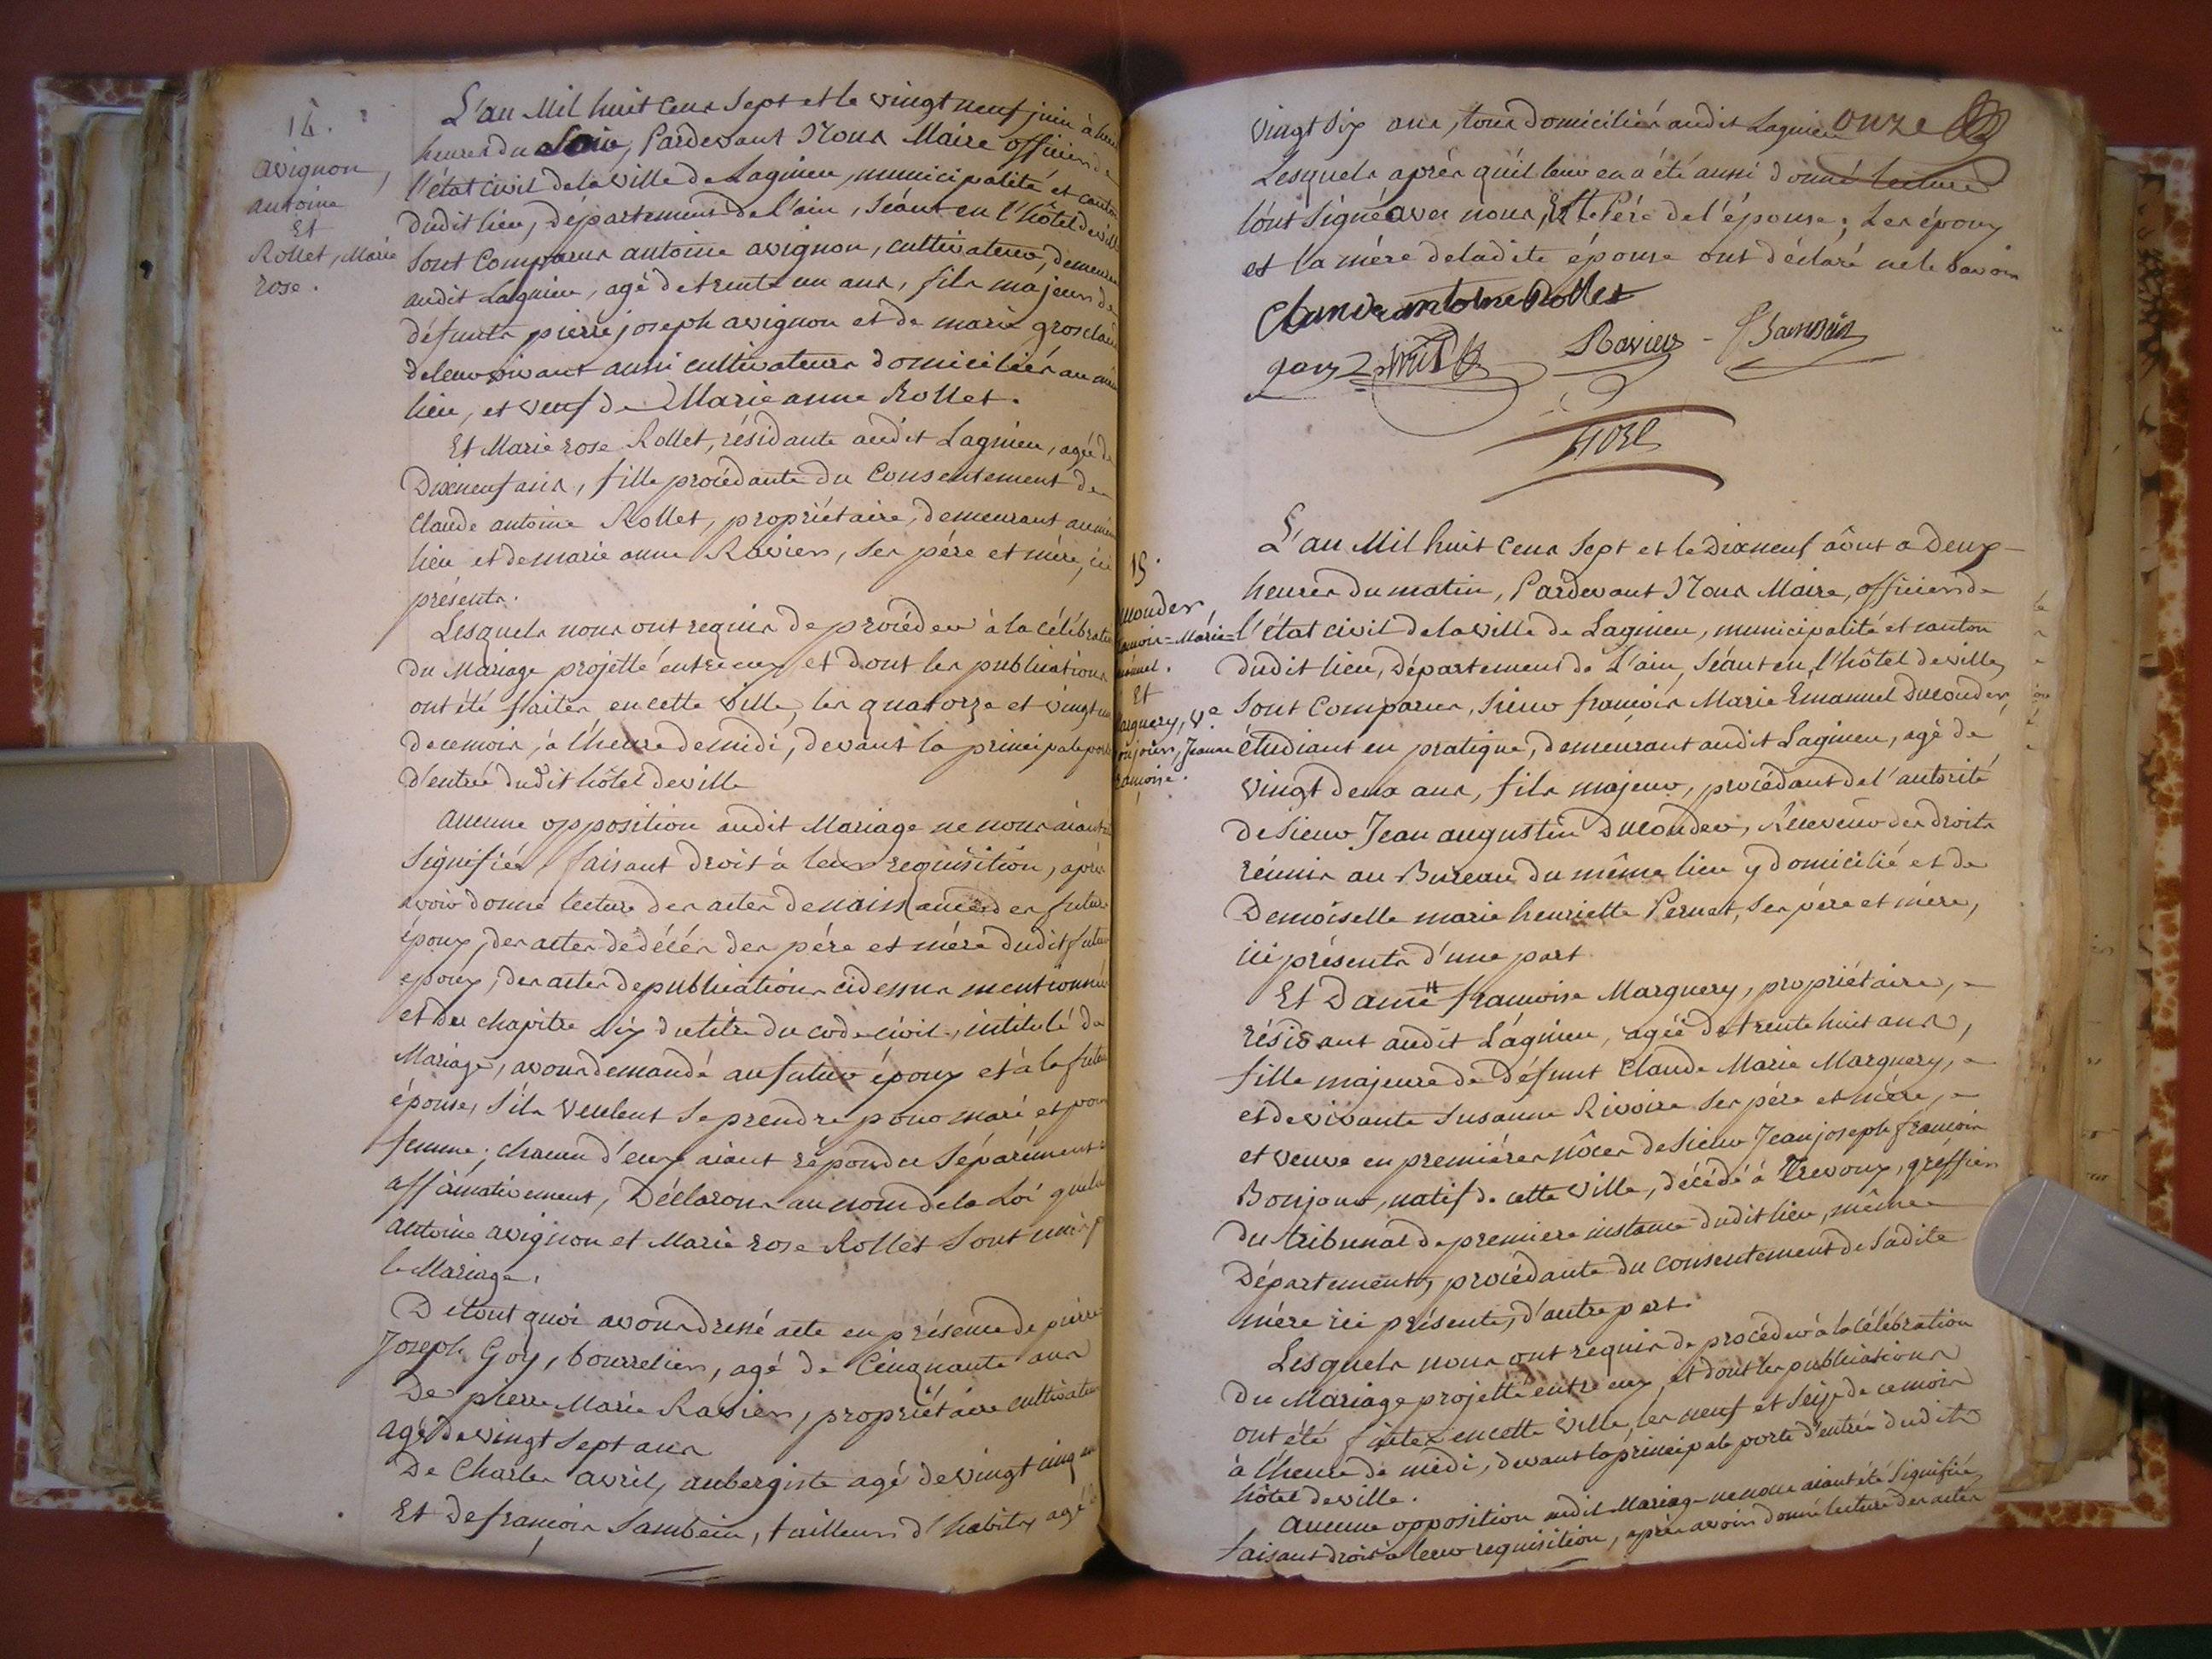 14.
avignon,
antoine
Et
Rollet, Marie
rose.
L'an Mil huit Cens Sept et le vingt neuf juin à
heures du Soir, Pardevant Nous Maire officier de
l'état civil de la ville de Lagnieu, municipalité et canton
dudit lieu, département de l'ain, Séant en l'hôtel de ville
Sont Comparus antoine avignon, cultivateur, demeurant
audit Lagnieu, agé de trente un ans, fils majeur de
défunts pierre joseph avignon et de marie
de leur vivant aussi cultivateurs domiciliés au même
lieu, et veuf de Marie anne Rollet.
Et Marie rose Rollet, résidante audit Lagnieu, agée de
Dixneuf ans, fille procédante du Consentement de
Claude antoine Rollet, propriétaire, demeurant au même
lieu et de marie anne Ravier, ses pére et mère, ici
présents.
Lesquels nous ont requis de procéder à la célébration
du Mariage projetté entre eux et dont les publications
ont été faites en cette ville, les quatorze et vingt un
de ce mois, à l'heure de midi, devant la principale porte
d'entrée dudit hôtel de ville
aucune opposition audit Mariage ne nous aiant été
Signifiée, faisant droit à leur requisition, après
avoir donné lecture des actes de naissance des futurs
époux, des actes de décés des pére et mére dudit futur
epoux, des actes de publications cidessus mentionnés
et du chapitre Six du titre du code civil, intitulé du
Mariage, avons demandé au futur époux et à la future
épouse, s'ils veulent se prendre pour mari et pour
femme; chacun d'eux aiant répondu Séparément et
affirmativement, Déclarons au nom de la Loi que
antoine avignon et Marie rose Rollet Sont unis p
le Mariage.
De tout quoi avons dressé acte en présence de pierre
Joseph Goy, bourrelier, agé de Cinquante ans
De pierre Marie Ravier, propriétaire cultivateur
agé de vingt Sept ans
De Charles avril, aubergiste agé de vingt cinq ans
Et de françois Sambein, tailleur d'habits, agé de
vingt Six ans, tous domiciliés audit Lagnieu onze
Lesquels aprés qu'il leur en a été aussi donné lecture
l'ont Signé avec nous, Et le Pére de l'épouse; Les époux
et la mére de ladite épouse ont déclaré ne le Savoir
Claude antoine Rollet
Ravier
15.
Et
L'an Mil huit Cens Sept et le Dixneuf août a Deux
heures du matin, Pardevant Nous Maire, officier de
l'état civil de la ville de Lagnieu, municipalité et canton
dudit lieu, Département de L'ain, Séant en l'hôtel de ville,
Sont Comparus, Sieur françois Marie Emanuel Ducouder,
étudiant en pratique, demeurant audit Lagnieu, agé de
vingt deux ans, fils majeur, procédant de l'autorité
de Sieur Jean augustin Ducouder, Receveur des droits
réunis au Bureau du même lieu y domicilié et de
Demoiselle marie henriette Pernet, ses pére et mére,
ici présents d'une part.
Et Dame françoise Marguery, propriétaire,
résidant audit Lagnieu, agée de trente huit ans,
fille majeure de défunt Claude Marie Marguery,
et de vivante Susanne Rivoire ses pére et mére,
et veuve en premiéres nôces de Sieur Jean joseph françois
Bonjour, natif de cette ville, décédé à Trevoux, greffier
du tribunal de premiere instance dudit lieu, même
Département, procédante du consentement de Sadite
mére ici présente, d'autre part.
Lesquels nous ont requis de procéder à la célébration
du Mariage projetté entre eux et dont les publications
ont été faites en cette ville, les neuf et Seize de ce mois
à l'heure de midi, devant la principale porte d'entrée dudit
hôtel de ville.
aucune opposition audit Mariage ne nous aiant été Signifiée,
faisant droit à leur requisition, après avoir donné lecture des actes